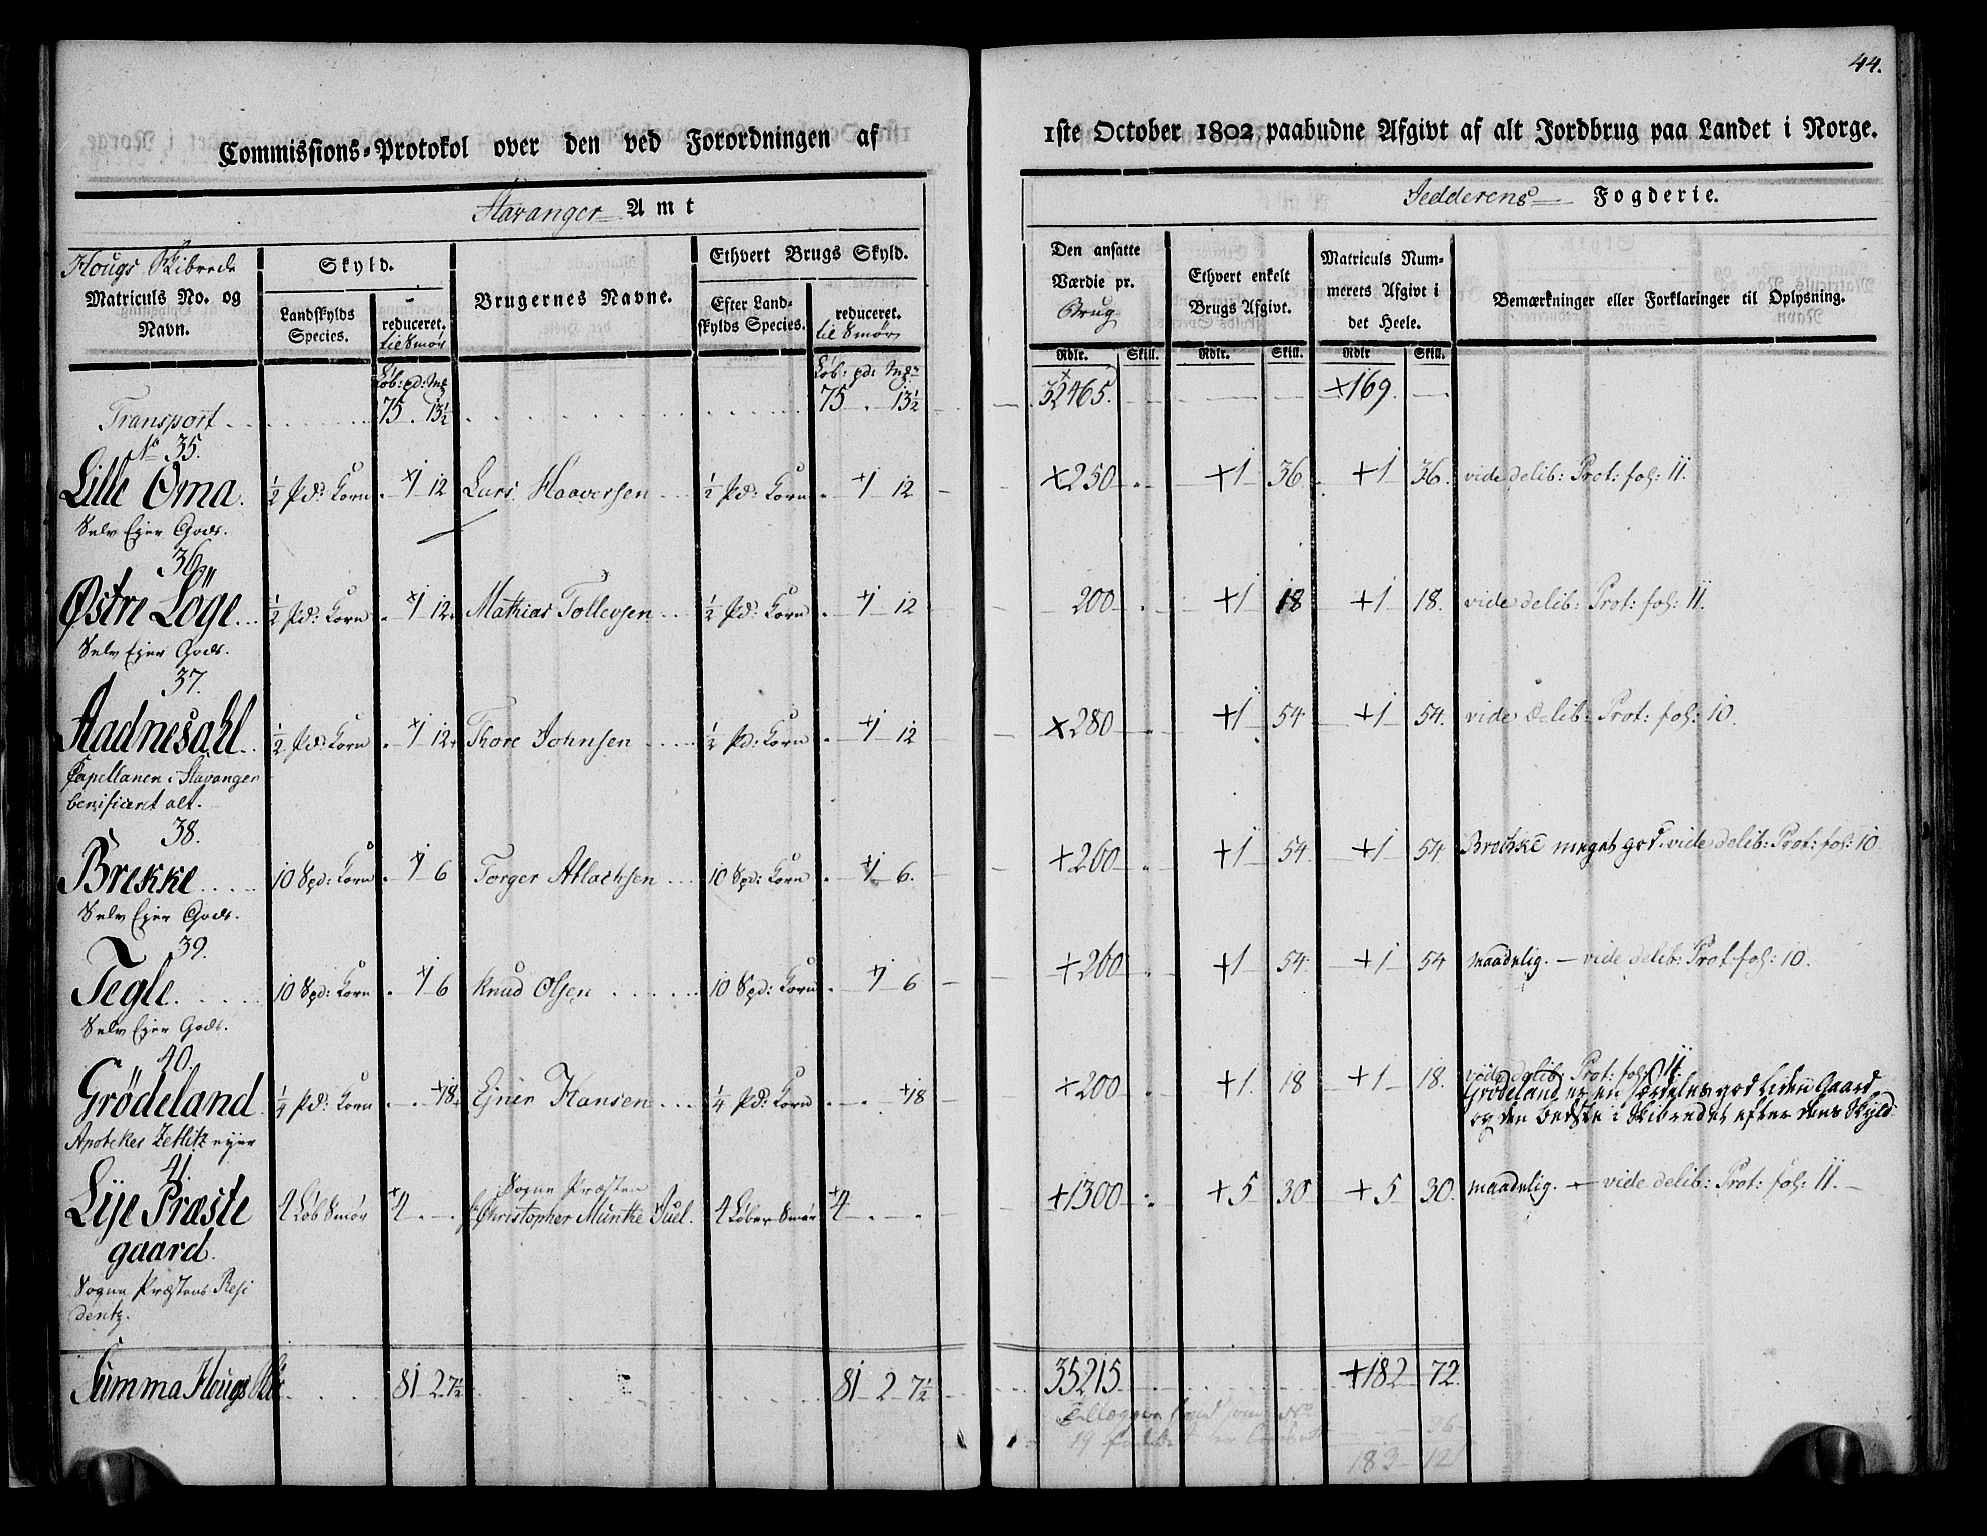 44.
Commissions-Protokol over den ved Forordningen af 1ste October 1802 paabudne Afgivt af alt Jordbrug paa Landet i Norge.
Stavanger Amt
Jedderens Fogderie.
Hougs Skibrede
Matriculs No. og Navn.
Skyld.
Landskylds Species.
reduceret. til Smör
Brugernes Navne.
Ethvert Brugs Skyld.
Efter Landskylds Species.
reduceret. til Smör
Den ansatte Værdie pr. Brug
Ethvert enkelt Brugs Afgivt.
Matriculs Nummerets Afgivt i det Heele.
Bemærkninger eller Forklaringer til Oplysning.
Rdlr. Skill. Rdlr. Skill. Rdlr Skill.
Löb: pd: Mg Löb: pd: Mg
Transport 75 . 13½ 75 . 13½ 32465. ×169.
No 35.
Lille Oma ½ Pd: Korn . ×1 12 Lars Haaversen ½ Pd: Korn . +1 12 ×250 +1 36 +1 36. vide delib: Prot: fol: 11.
Selv Ejer Gods.
36.
Østre Löge ½ Pd: Korn . ×1 12 Mathias Tollevsen ½ Pd: Korn . +1 12 200 +1 18 +1 18. vide delib: Prot: fol: 11.
Selv Ejer Gods.
37.
Aadnesahl ½ Pd: Korn . ×1 12 Thore Johnsen ½ Pd: Korn . +1 12 ×280 +1 54 +1 54. vide delib: Prot: fol: 10.
Capellanen i Stavanger
benificeret alt.
38.
Brekke 10 Spd: Korn . ×1 6 Torger Atlachsen 10 Spd: Korn . +1 6. +260 +1 54. +1 54 Brekke meget god. vide delib: Prot: fol: 10.
Selv Ejer Gods.
39.
Tegle 10 Spd: Korn . +1 6 Knud Olsen 10 Spd: Korn . +1 6 +260 +1 54 +1 54 maadelig. — vide delib: Prot: fol: 10.
Selv Ejer Gods.
40.
Grödeland ¼ Pd: Korn . . +18 Ejner Hansen ¼ Pd: Korn . . +18 +200 +1. 18 +1 18. vide delib: Prot: fol: 11.
Grödeland er en særdeles god liden Gaard
og den bedste i Skibredet efter dens Skyld
Apoteker Zetlitz ejer
41.
Lye Præste 4 Löb Smör +4 . . Sogne Præsten
Hr Christopher Munke Juel. 4 Löber Smör +4 . . +1300 +5 30 +5 30. maadelig. + vide delib: Prot: fol: 11. —
gaard.
Sogne Præstens Resi
dentz.
Summa Hougs Skr 81 2 7½ 81 2 7½ 35215 +182 72.
36
183 12